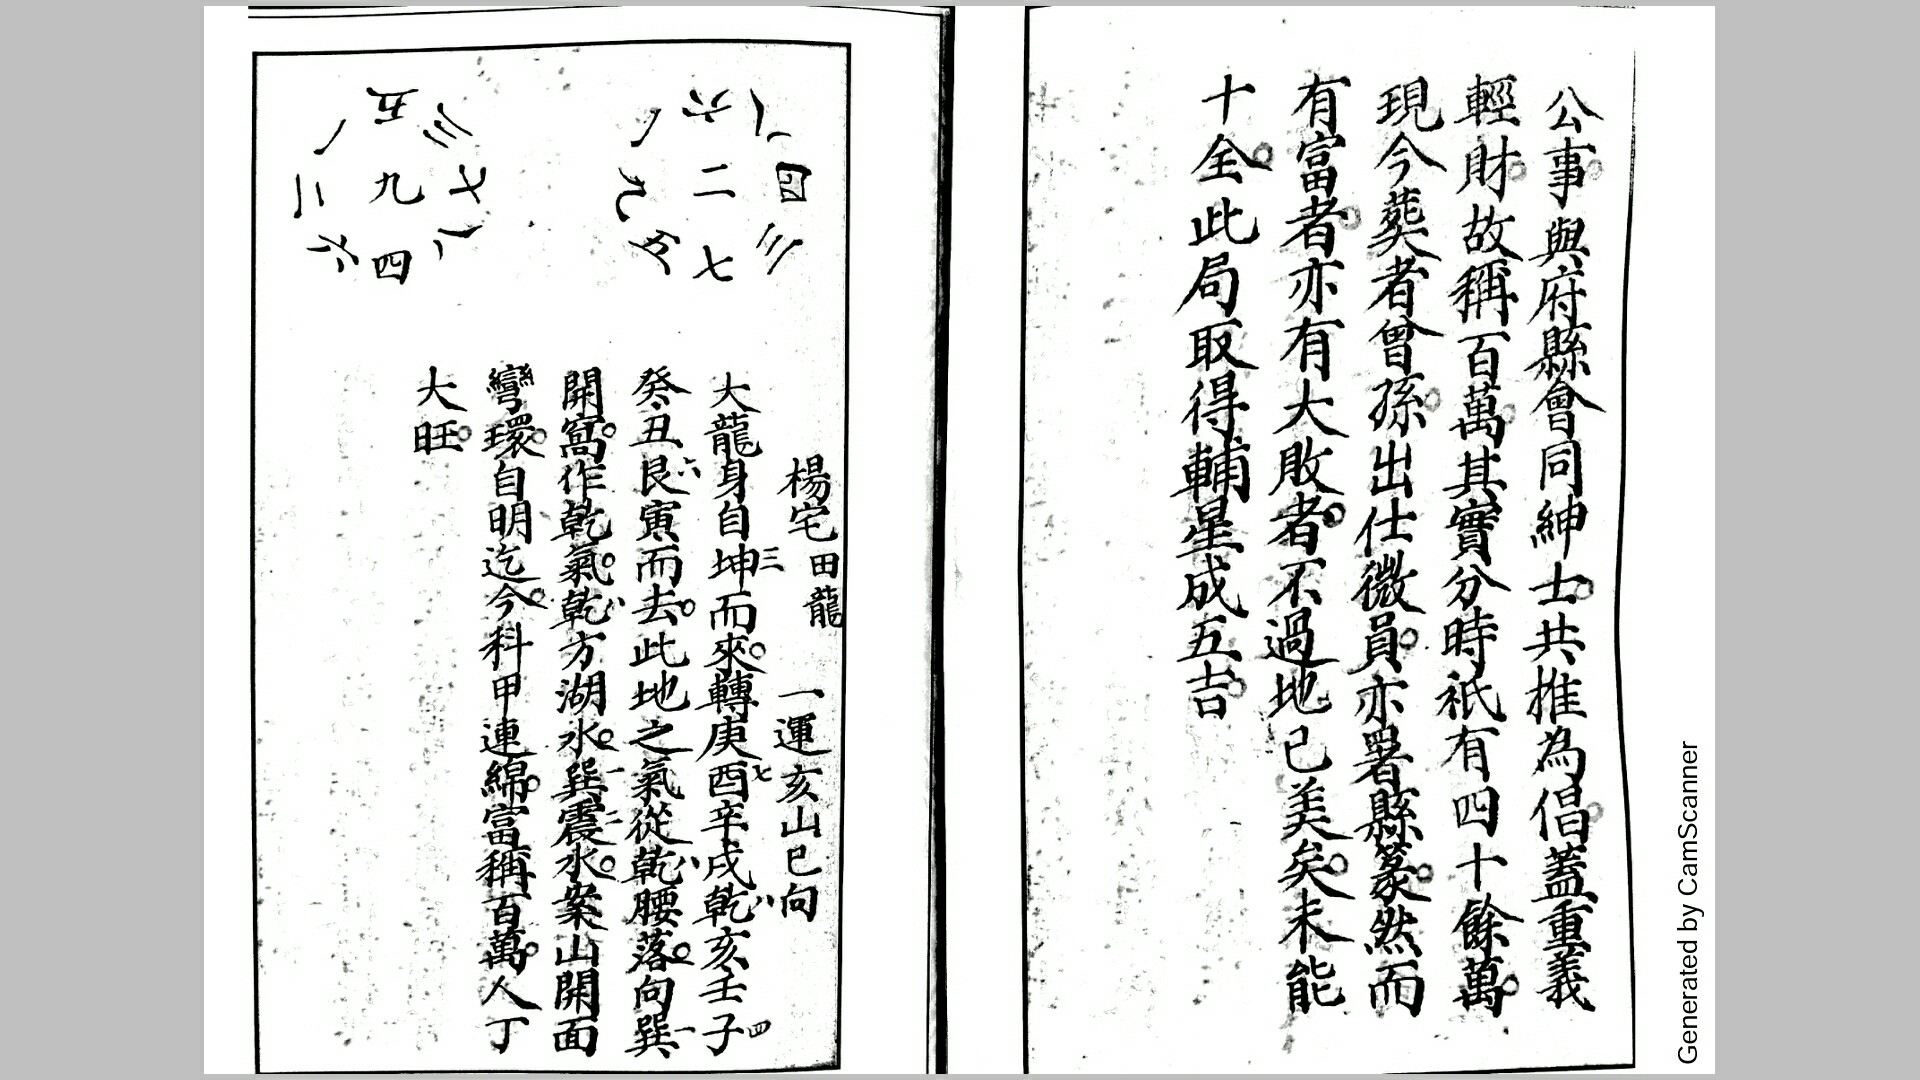 公事與府縣會同紳士共推為倡蓋重義
輕財故稱百萬其實分時祇有四十餘萬
現今葬者曾孫出仕微員亦署縣篆然而
有富者亦有大敗者不過地已美矣未能
十全此局取得輔星成五吉
楊宅田龍 一運亥山巳向
大龍身自坤三而來轉庚酉七辛戌乾八亥壬子四
癸丑艮六寅而去此地之氣從乾八腰落向巽一
開窩作乾氣乾八方湖水巽一震二水案山開面
彎環自明迄今科甲連綿富稱百萬人丁
大旺
六 八 四
一 二 三
九 五 七
五 三 七
一 九 八
二 六 四
Generated by CamScanner